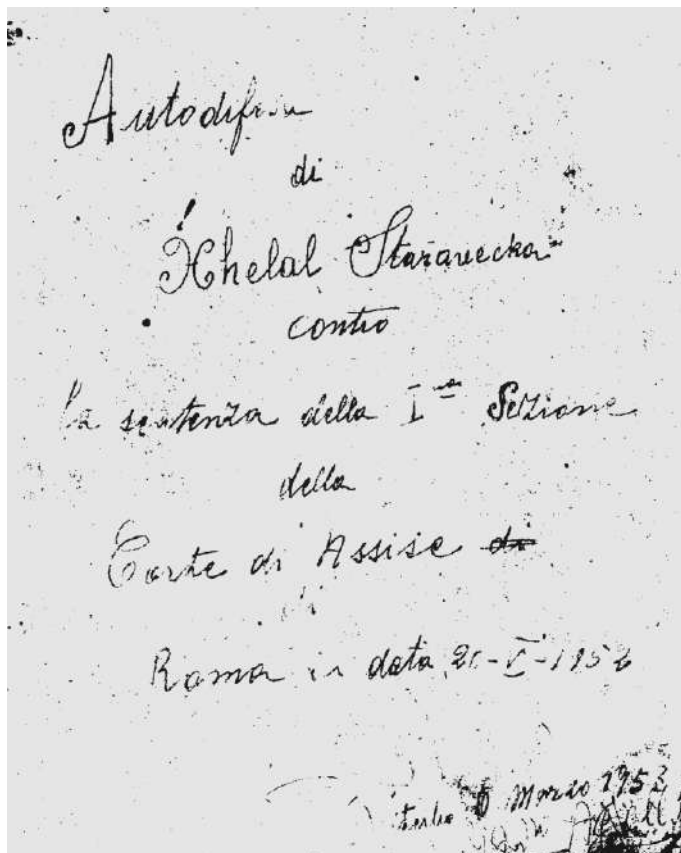 Autodifesa
di
Xhelal Staravecka
contro
la sentenza della Iª Sezione
della
Corte di Assise di
di
Roma in data
Marzo 1953